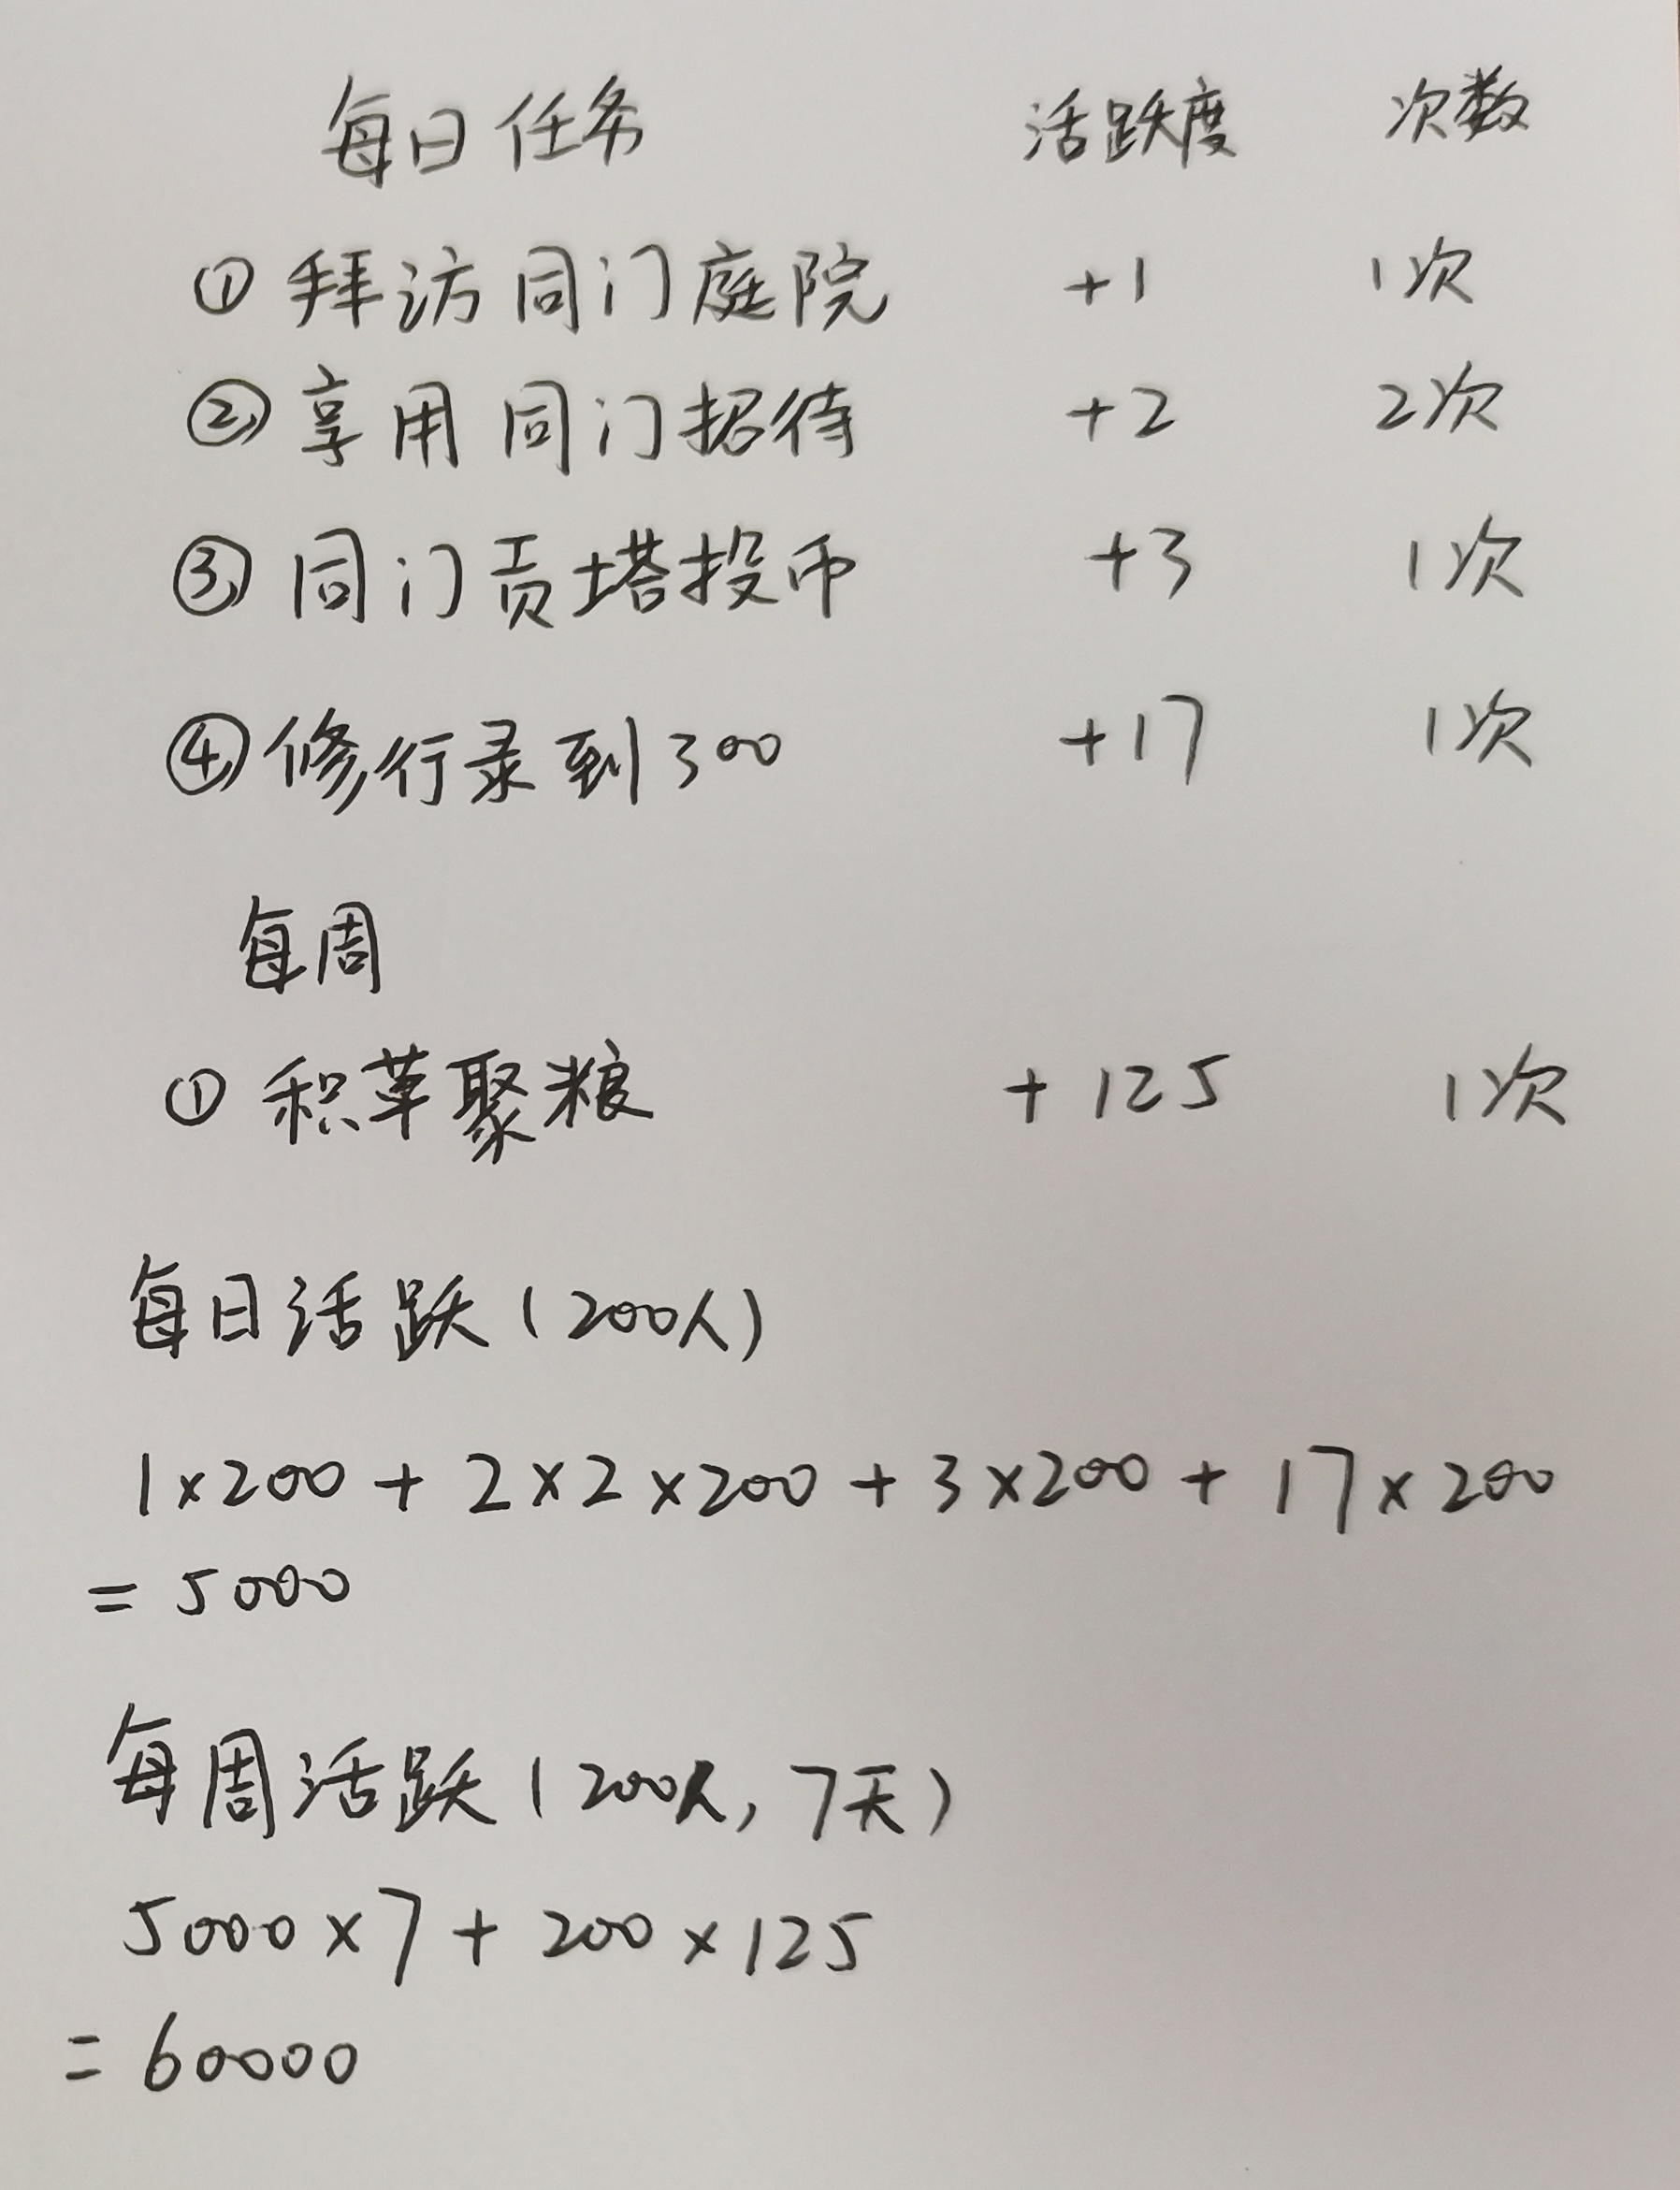 每日任务 活跃度 次数
① 拜访同门庭院 +1 1次
② 享用同门招待 +2 2次
③ 同门贡塔投币 +3 1次
④ 修行录到300 +17 1次
每周
① 积草聚粮 +125 1次
每日活跃(200人)
1×200+2×2×200+3×200+17×200
=5000
每周活跃(200人,7天)
5000×7+200×125
=60000